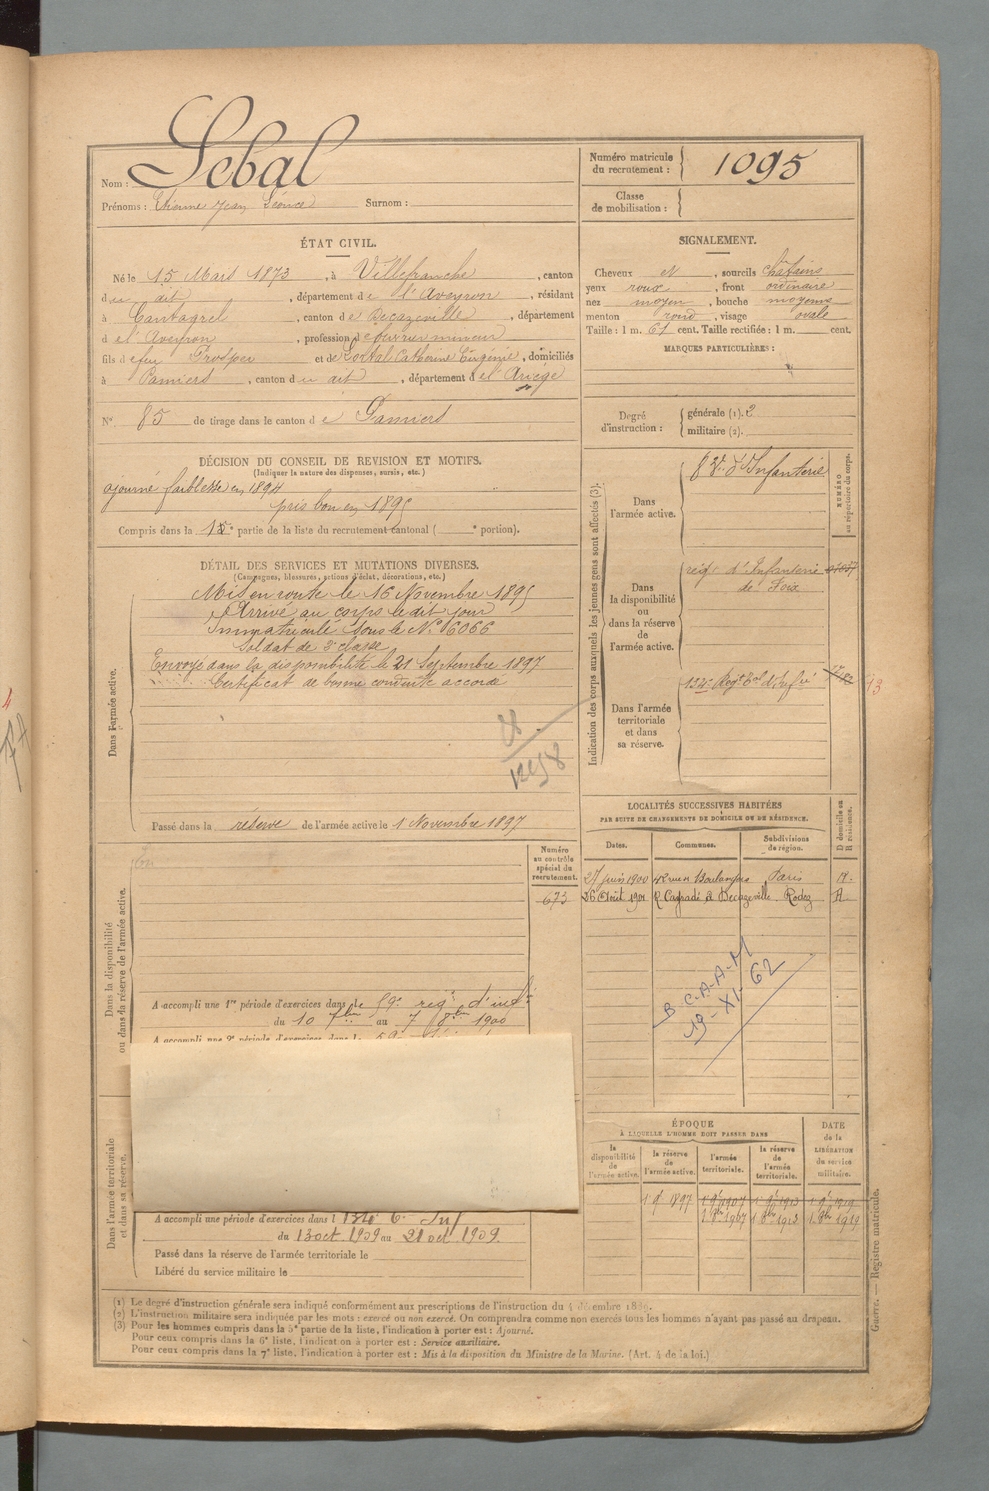 Nom : Lebal
Prénoms : Etienne Jean Leonce Surnom :
Numéro matricule du recrutement : 1095
Classe de mobilisation :
ÉTAT CIVIL.
Né le 15 Mars 1873, à Villefranche, canton
du dit, département de l'Aveyron, résidant
à Cantagrel, canton de Decazeville, département
de l'Aveyron, profession d'ouvrier mineur
fils de feu Prosper et de Lortal Catherine Eugénie, domiciliés
à Pamiers, canton du dit, département de l'Ariège
N° 85 de tirage dans le canton de Pamiers
SIGNALEMENT.
Cheveux et, sourcils châtains
yeux roux, front ordinaire
nez moyen, bouche moyenne
menton rond, visage ovale
Taille : 1 m. 61 cent. Taille rectifiée : 1 m. cent.
MARQUES PARTICULIÈRES :
Degré d'instruction : générale (1). 2
militaire (2).
DÉCISION DU CONSEIL DE REVISION ET MOTIFS.
(Indiquer la nature des dispenses, sursis, etc.)
ajourné faiblesse en 1894
pris bon en 1895
Compris dans la 1re partie de la liste du recrutement cantonal ( e portion).
DÉTAIL DES SERVICES ET MUTATIONS DIVERSES.
(Campagnes, blessures, actions d'éclat, décorations, etc.)
Dans l'armée active.
Mis en route le 16 Novembre 1895
Arrivé au corps le dit jour
Immatriculé sous le N° 6066
Soldat de 2e classe
Envoyé dans la disponibilité le 21 Septembre 1897
Certificat de bonne conduite accordé
Passé dans la réserve de l'armée active le 1 Novembre 1897
Indication des corps auxquels les jeunes gens sont affectés (3).
NUMÉRO au répertoire du corps.
Dans l'armée active.
83e d'Infanterie
Dans la disponibilité ou dans la réserve de l'armée active.
régt d'Infanterie
de Foix
Dans l'armée territoriale et dans sa réserve.
134e Régt Tal d'Infie
13
LOCALITÉS SUCCESSIVES HABITÉES
PAR SUITE DE CHANGEMENTS DE DOMICILE OU DE RÉSIDENCE.
Dates. Communes. Subdivisions de région. D domicile ou R résidence.
27 juin 1900 Paris R.
Août 1901 Decazeville Rodez
B.C.A.A.M
19-XI-62
Dans la disponibilité ou dans la réserve de l'armée active.
Numéro au contrôle spécial du recrutement.
673
A accompli une 1re période d'exercices dans le 59e régt d'infie
du 10 7bre au 7 8bre 1900
A accompli une 2e période d'exercices dans le 59
Dans l'armée territoriale et dans sa réserve.
A accompli une période d'exercices dans l 134e
du 13 oct 1909 au 21 oct 1909
Passé dans la réserve de l'armée territoriale le
Libéré du service militaire le
ÉPOQUE
À LAQUELLE L'HOMME DOIT PASSER DANS
la disponibilité de l'armée active. la réserve de l'armée active. l'armée territoriale. la réserve de l'armée territoriale. DATE de la LIBÉRATION du service militaire.
1 9bre 1897 1 9bre 1907 1 9bre 1913 1 9bre 1919
1 8bre 1907 1 8bre 1913 1 8bre 1919
(1) Le degré d'instruction générale sera indiqué conformément aux prescriptions de l'instruction du 4 décembre 1889.
(2) L'instruction militaire sera indiquée par les mots : exercé ou non exercé. On comprendra comme non exercés tous les hommes n'ayant pas passé au drapeau.
(3) Pour les hommes compris dans la 5e partie de la liste, l'indication à porter est : Ajourné.
Pour ceux compris dans la 6e liste, l'indication à porter est : Service auxiliaire.
Pour ceux compris dans la 7e liste, l'indication à porter est : Mis à la disposition du Ministre de la Marine. (Art. 4 de la loi.)
Guerre. — Registre matricule.